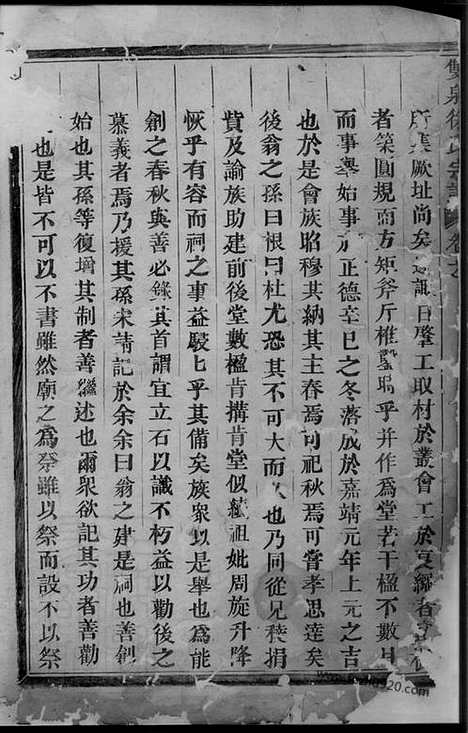 雙泉徐氏宗譜 卷之
所集厥址尚矣 諏日肇工取材於叢會工於
者築圓規而方矩斧斤椎鑿鳴乎並作為堂若干楹不數月
而事舉始事於正德辛巳之冬落成於嘉靖元年上元之吉
也於是會族昭穆其納其主春焉可祀秋焉可嘗孝思達矣
後翁之孫曰恨曰杜尤恐其不可大而久也乃同從兄稜捐
貲及諭族助建前後堂數楹肯搆肯堂似續祖妣周旋升降
恢乎有容而祠之事益駸乎其備矣族衆以是舉也為能
創之春秋典善必錄其首謂宜立石以識不朽益以勸後之
慕義者焉乃援其孫宋請記於余余曰翁之建是祠也善創
始也其孫等復增其制者善繼述也爾衆欲記其功者善勸
也是皆不可以不書雖然廟之為祭雖以祭而設不以祭